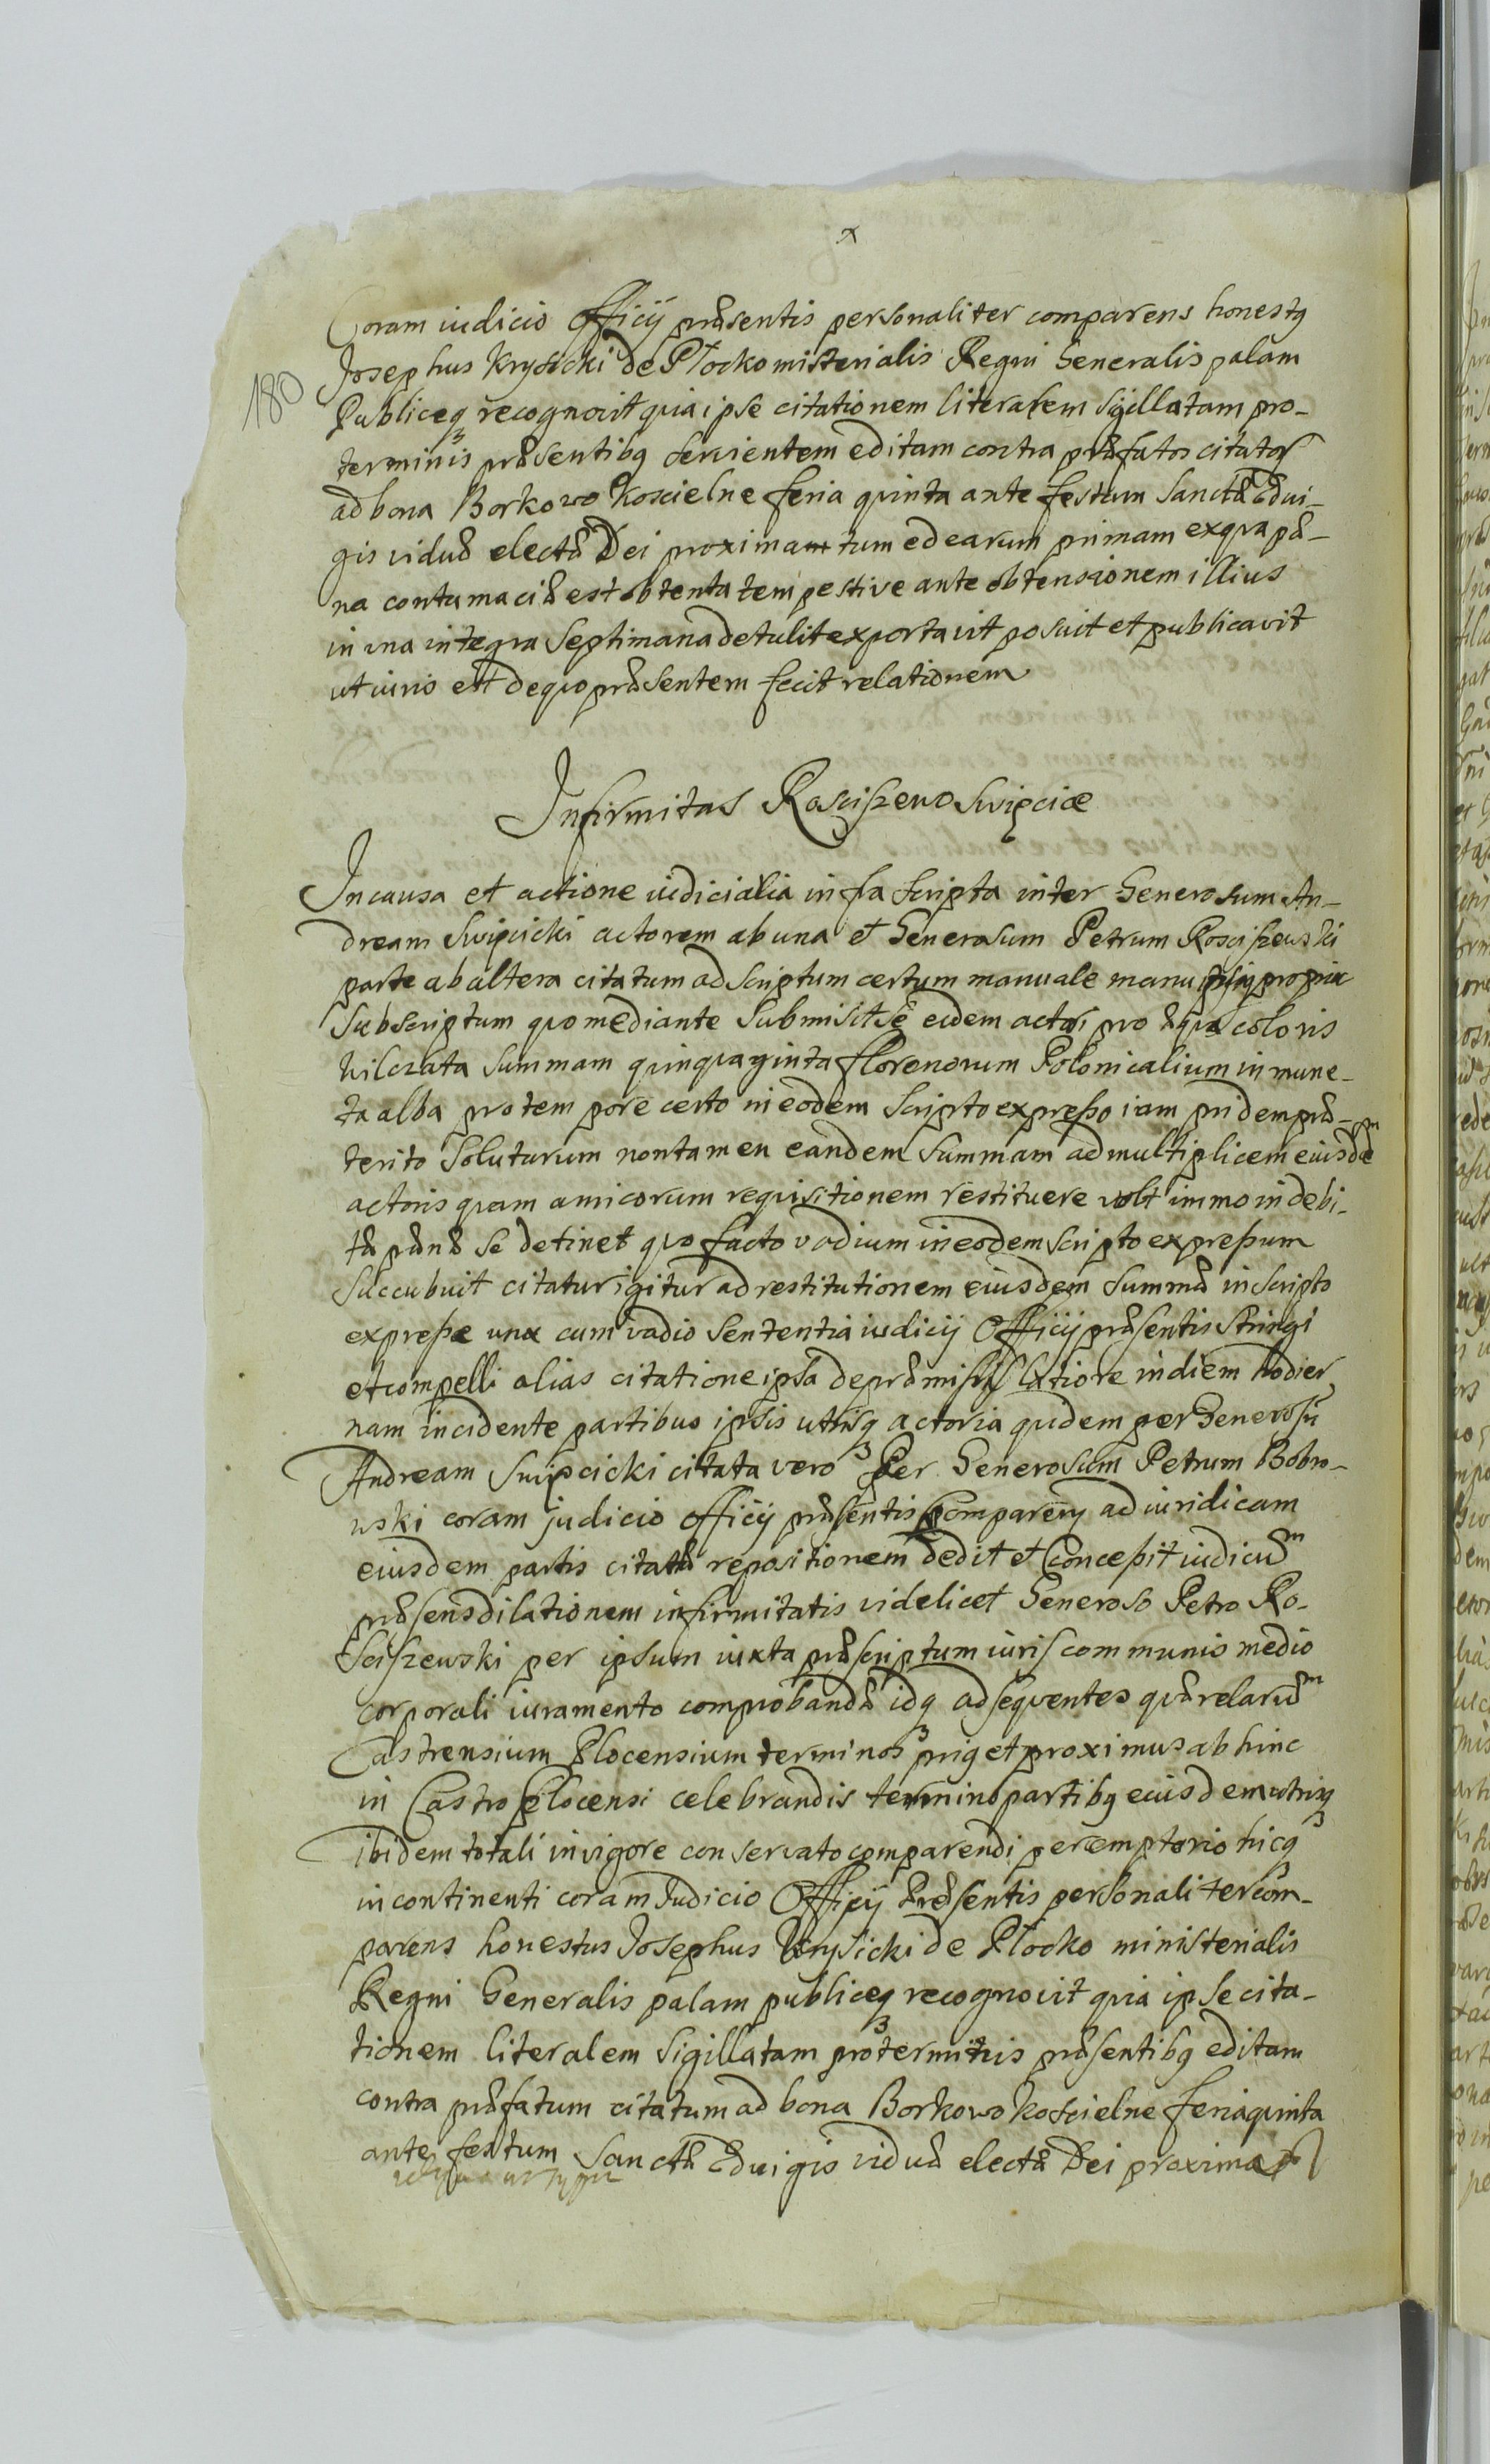 x
Coram iudicio Officÿ præsentis personaliter comparens honestꝯ
Josephus Krysicki de Płocko misterialis Regni Generalis palam
180
Publiceqꝫ recognovit quia ipse citationem literalem sigillatam pro-
terminis præsentibꝯ servientem editam contra præfatos citatos
ad bona Borkowo Koscielne feria quinta ante festum Sanctæ Edui-
gis viduæ electæ Dei proxima tum ed earum primam ex qua pæ-
na contumaciæ est obtenta tempestive ante obtensionem illius
in una integra Septimana detulit exportavit posuit et publicavit
ut iuris est de quo præsentem fecit relationem
Infirmitas Rosciszewo Swipciæ
In causa et actione iudicialia infra scripta inter Generosum An-
dream Swipcicki actorem ab una et Generosum Petrum Rosciszewski
parte ab altera citatum ad scriptum certum manuale manu propria
Subscriptum quo mediante submisit se eidem actori pro equa coloris
wilczata summam quinquaginta florenorum Polonicalium in mune-
ta alba pro tempore certo in eodem Scripto expresso iam pridem præ-
terito Soluturum non tamen eandem Summam ad multiplicem eiusdem
actoris quam amicorum requisitionem restituere volt immo indebi-
tæ pænæ se detinet quo facto vadium in eodem scripto expressum
succubuit citatur igitur ad restitutionem eiusdem Summæ in scripto
expresse una cum vadio Sententia iudicÿ Officÿ præsentis stringi
et compelli alias citatione ipsa de præmissis latiore in diem hodier
nam incidente partibus ipsis utrisqꝫ actoria quidem per Generosū
Andream Swipcicki citata vero per Generosum Petrum Bobro-
wski coram judicio officÿ præsentis comparenꝫ ad iuridicam
eiusdem partis citatæ repositionem dedit et Concessit iudiciūm
præsens dilationem infirmitatis videlicet Generoso Petro Ro-
sciszewski per ipsum iuxta præscriptum iuris communis medio
corporali iuramento comprobandæ idqꝫ ad seqventes quærelarūm
Castrensium Plocensium terminos prius et proximus ab hinc
in Castro Plocensi celebrandis termino partibꝯ eiusdem utrisqꝫ
ibidem totali in vigore conservato comparendi peremptorio hicqꝫ
in continenti coram Judicio Officÿ Præsentis personaliter com-
parens honestus Josephus Krysicki de Płocko ministerialis
Regni Generalis palam publiceqꝫ recognovit quia ipse cita-
tionem literalem sigillatam pro terminis præsentibꝯ editam
contra præfatum citatum ad bona Borkowo Koscielne feria quinta
ante festum Sanctæ Eduigis viduæ electæ Dei proxima